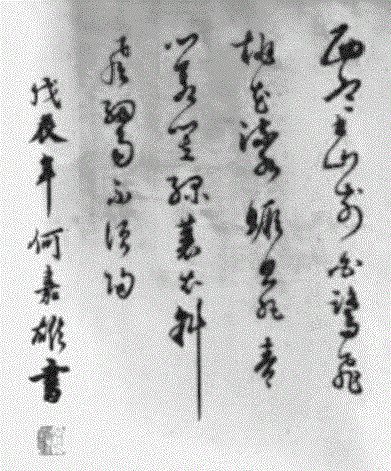 西塞山前白鹭飛
桃花流水鳜魚肥青
箬笠绿蓑衣斜
風細雨不須归
戊辰年何嘉雄書